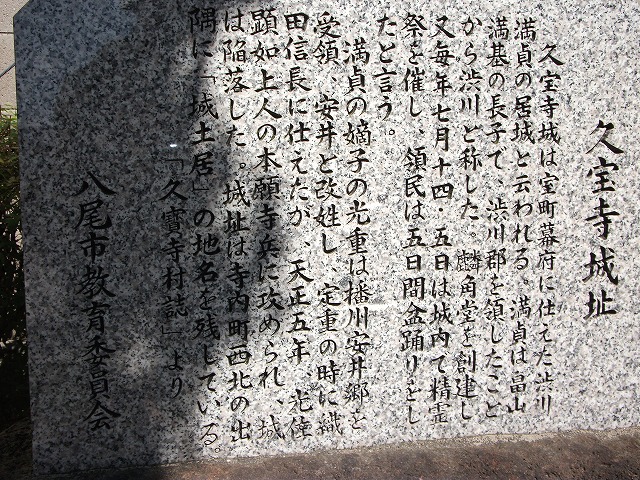 久宝寺城址
久宝寺城は室町幕府に仕えた渋川
満貞の居城と云われる。満貞は畠山
満基の長子で、渋川郡を領したこと
から渋川と称した。麟角堂を創建し
又毎年七月十四・五日は城内で精霊
祭を催し、領民は五日間盆踊りをし
たと言う。
満貞の嫡子の光重は播川安井郷を
受領、安井と改姓し、定重の時に織
田信長に仕えたが、天正五年、光重
顕如上人の本願寺兵に攻められ、城
は陥落した。城址は寺内町西北の出
隅に「城土居」の地名を残している。
「久寶寺村誌」より
八尾市教育委員会